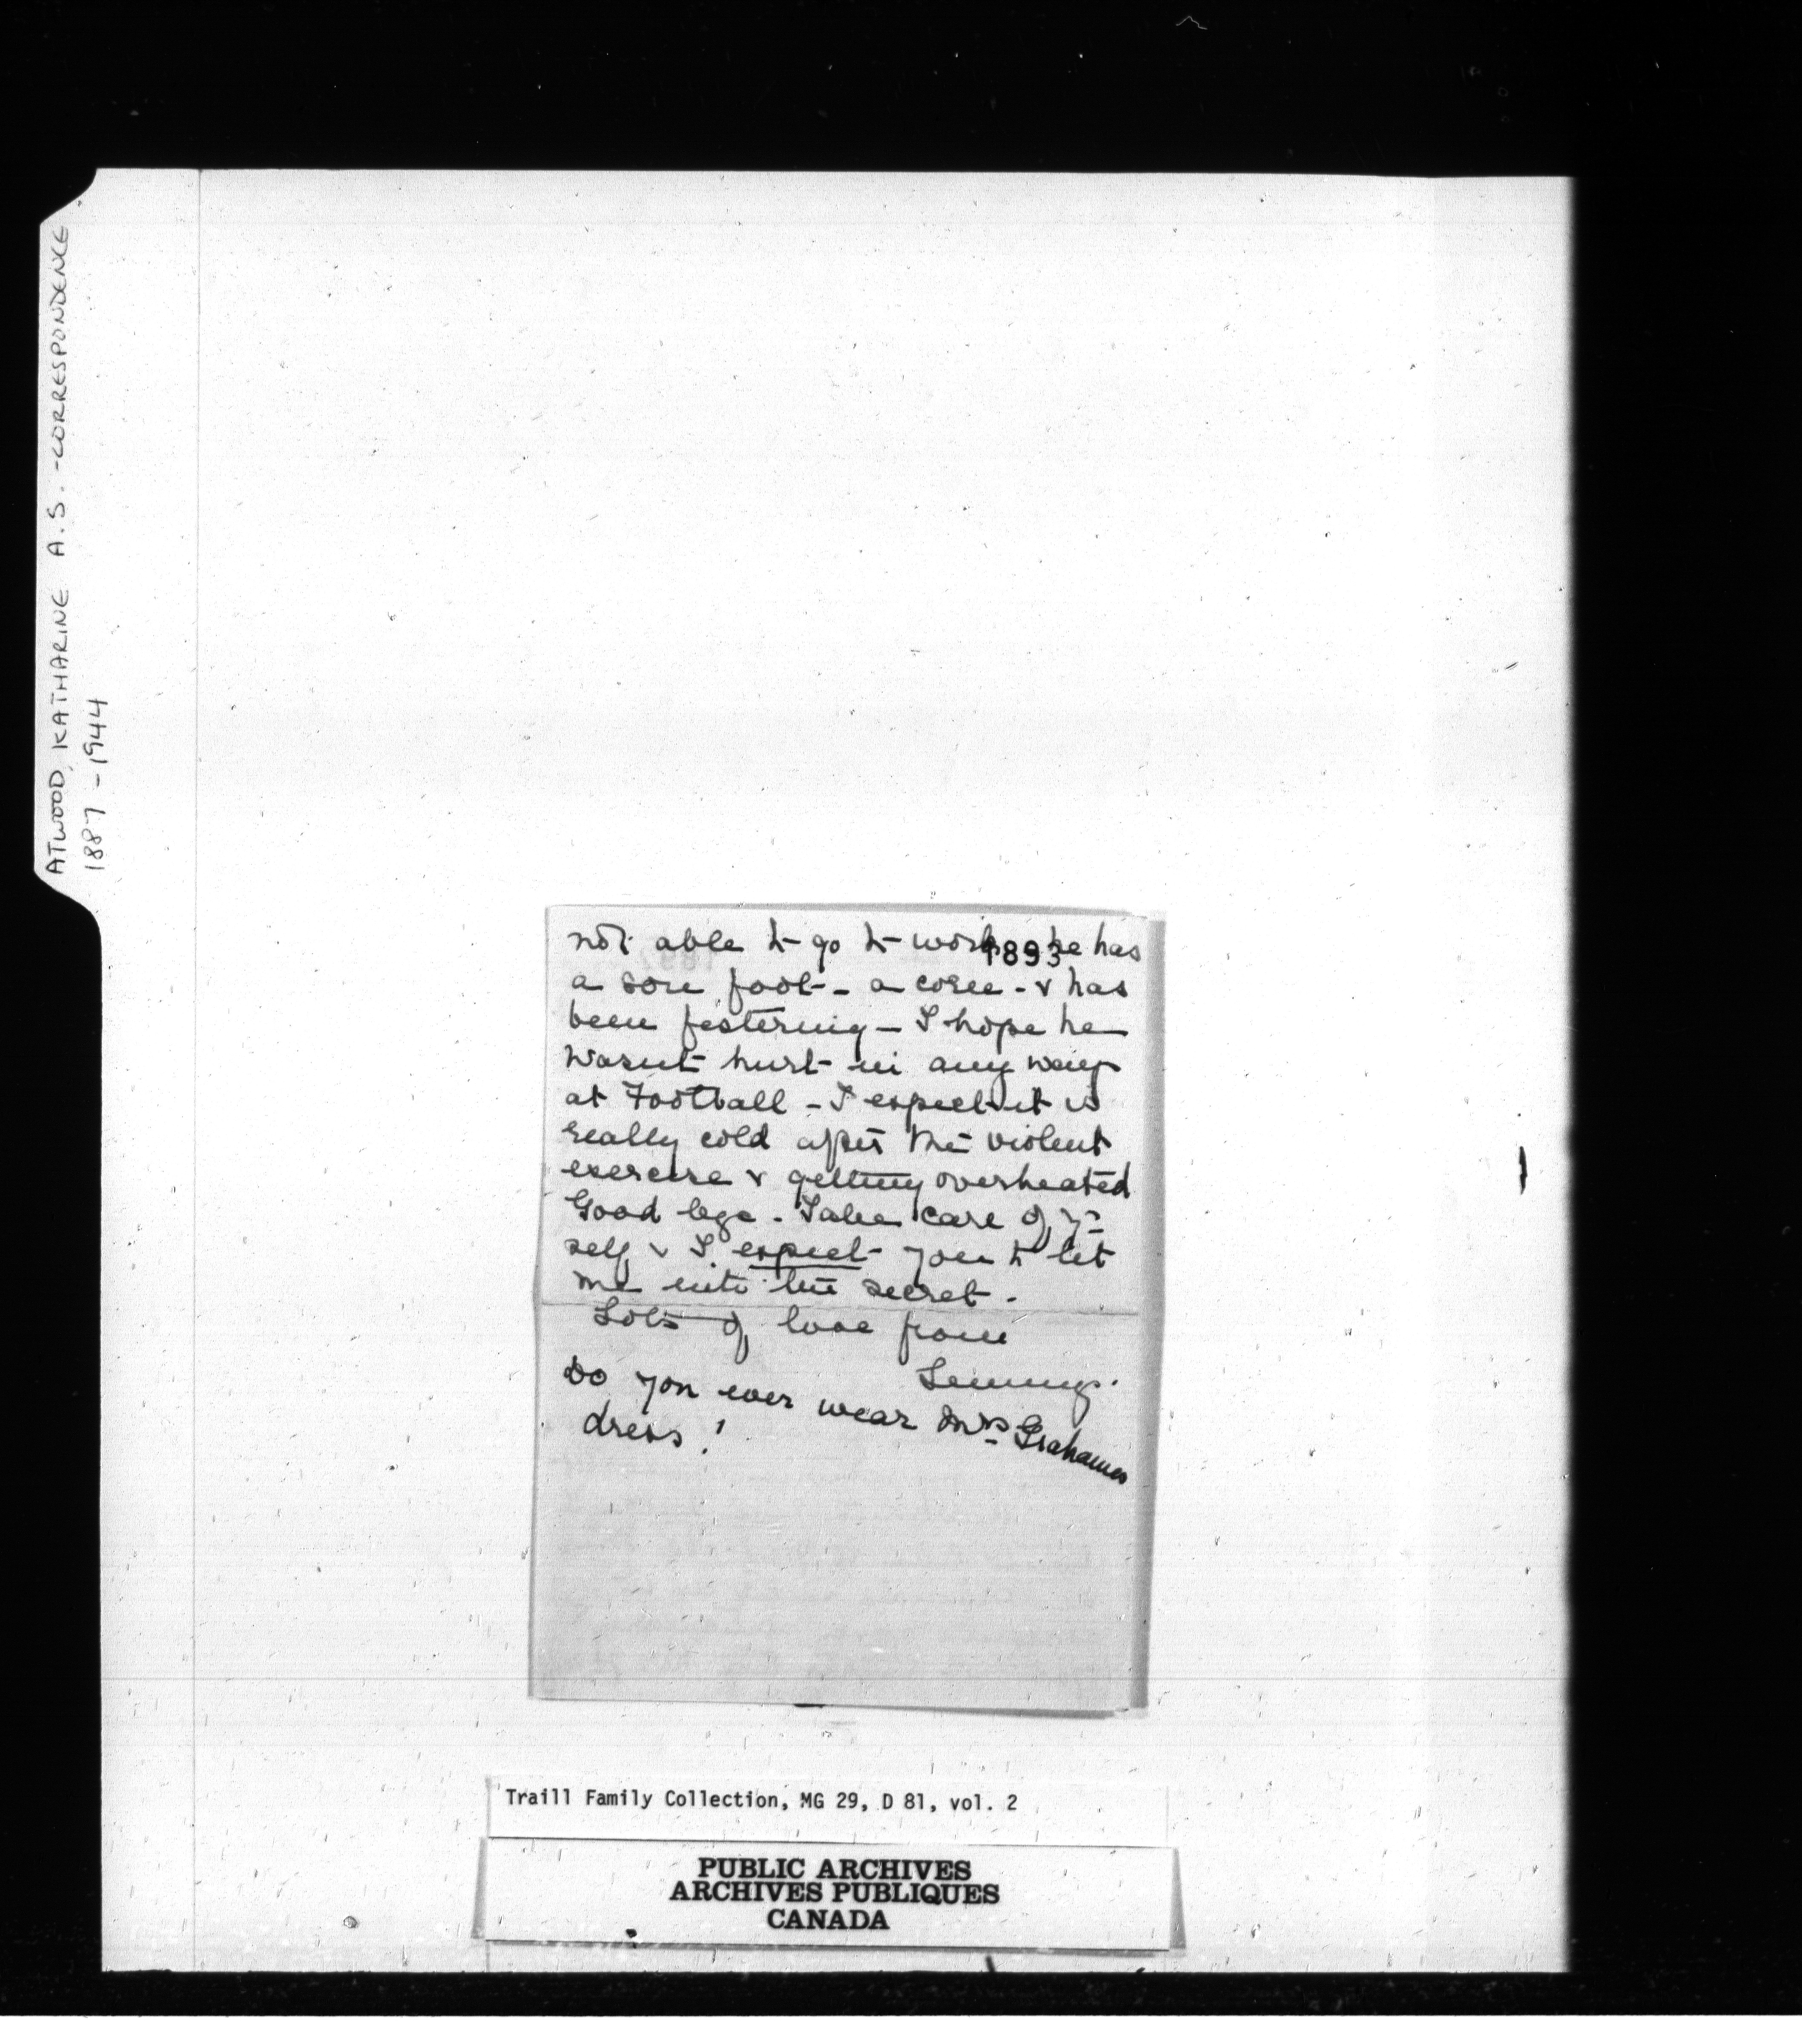 ATWOOD, KATHARINE A.S. - CORRESPONDENCE
1887 - 1944
not able to go to work he has
1893
a sore foot - a corn - & has
been festering - I hope he
wasnt hurt in any way
at Football - I expect it is
really cold after the violent
exercise & getting overheated
Good bye. Take care of yr
self & I expect you to let
me into the secret.
Lots of love from
Do you ever wear Mrs Grahames
dress!
Traill Family Collection, MG 29, D 81, vol. 2
PUBLIC ARCHIVES
ARCHIVES PUBLIQUES
CANADA